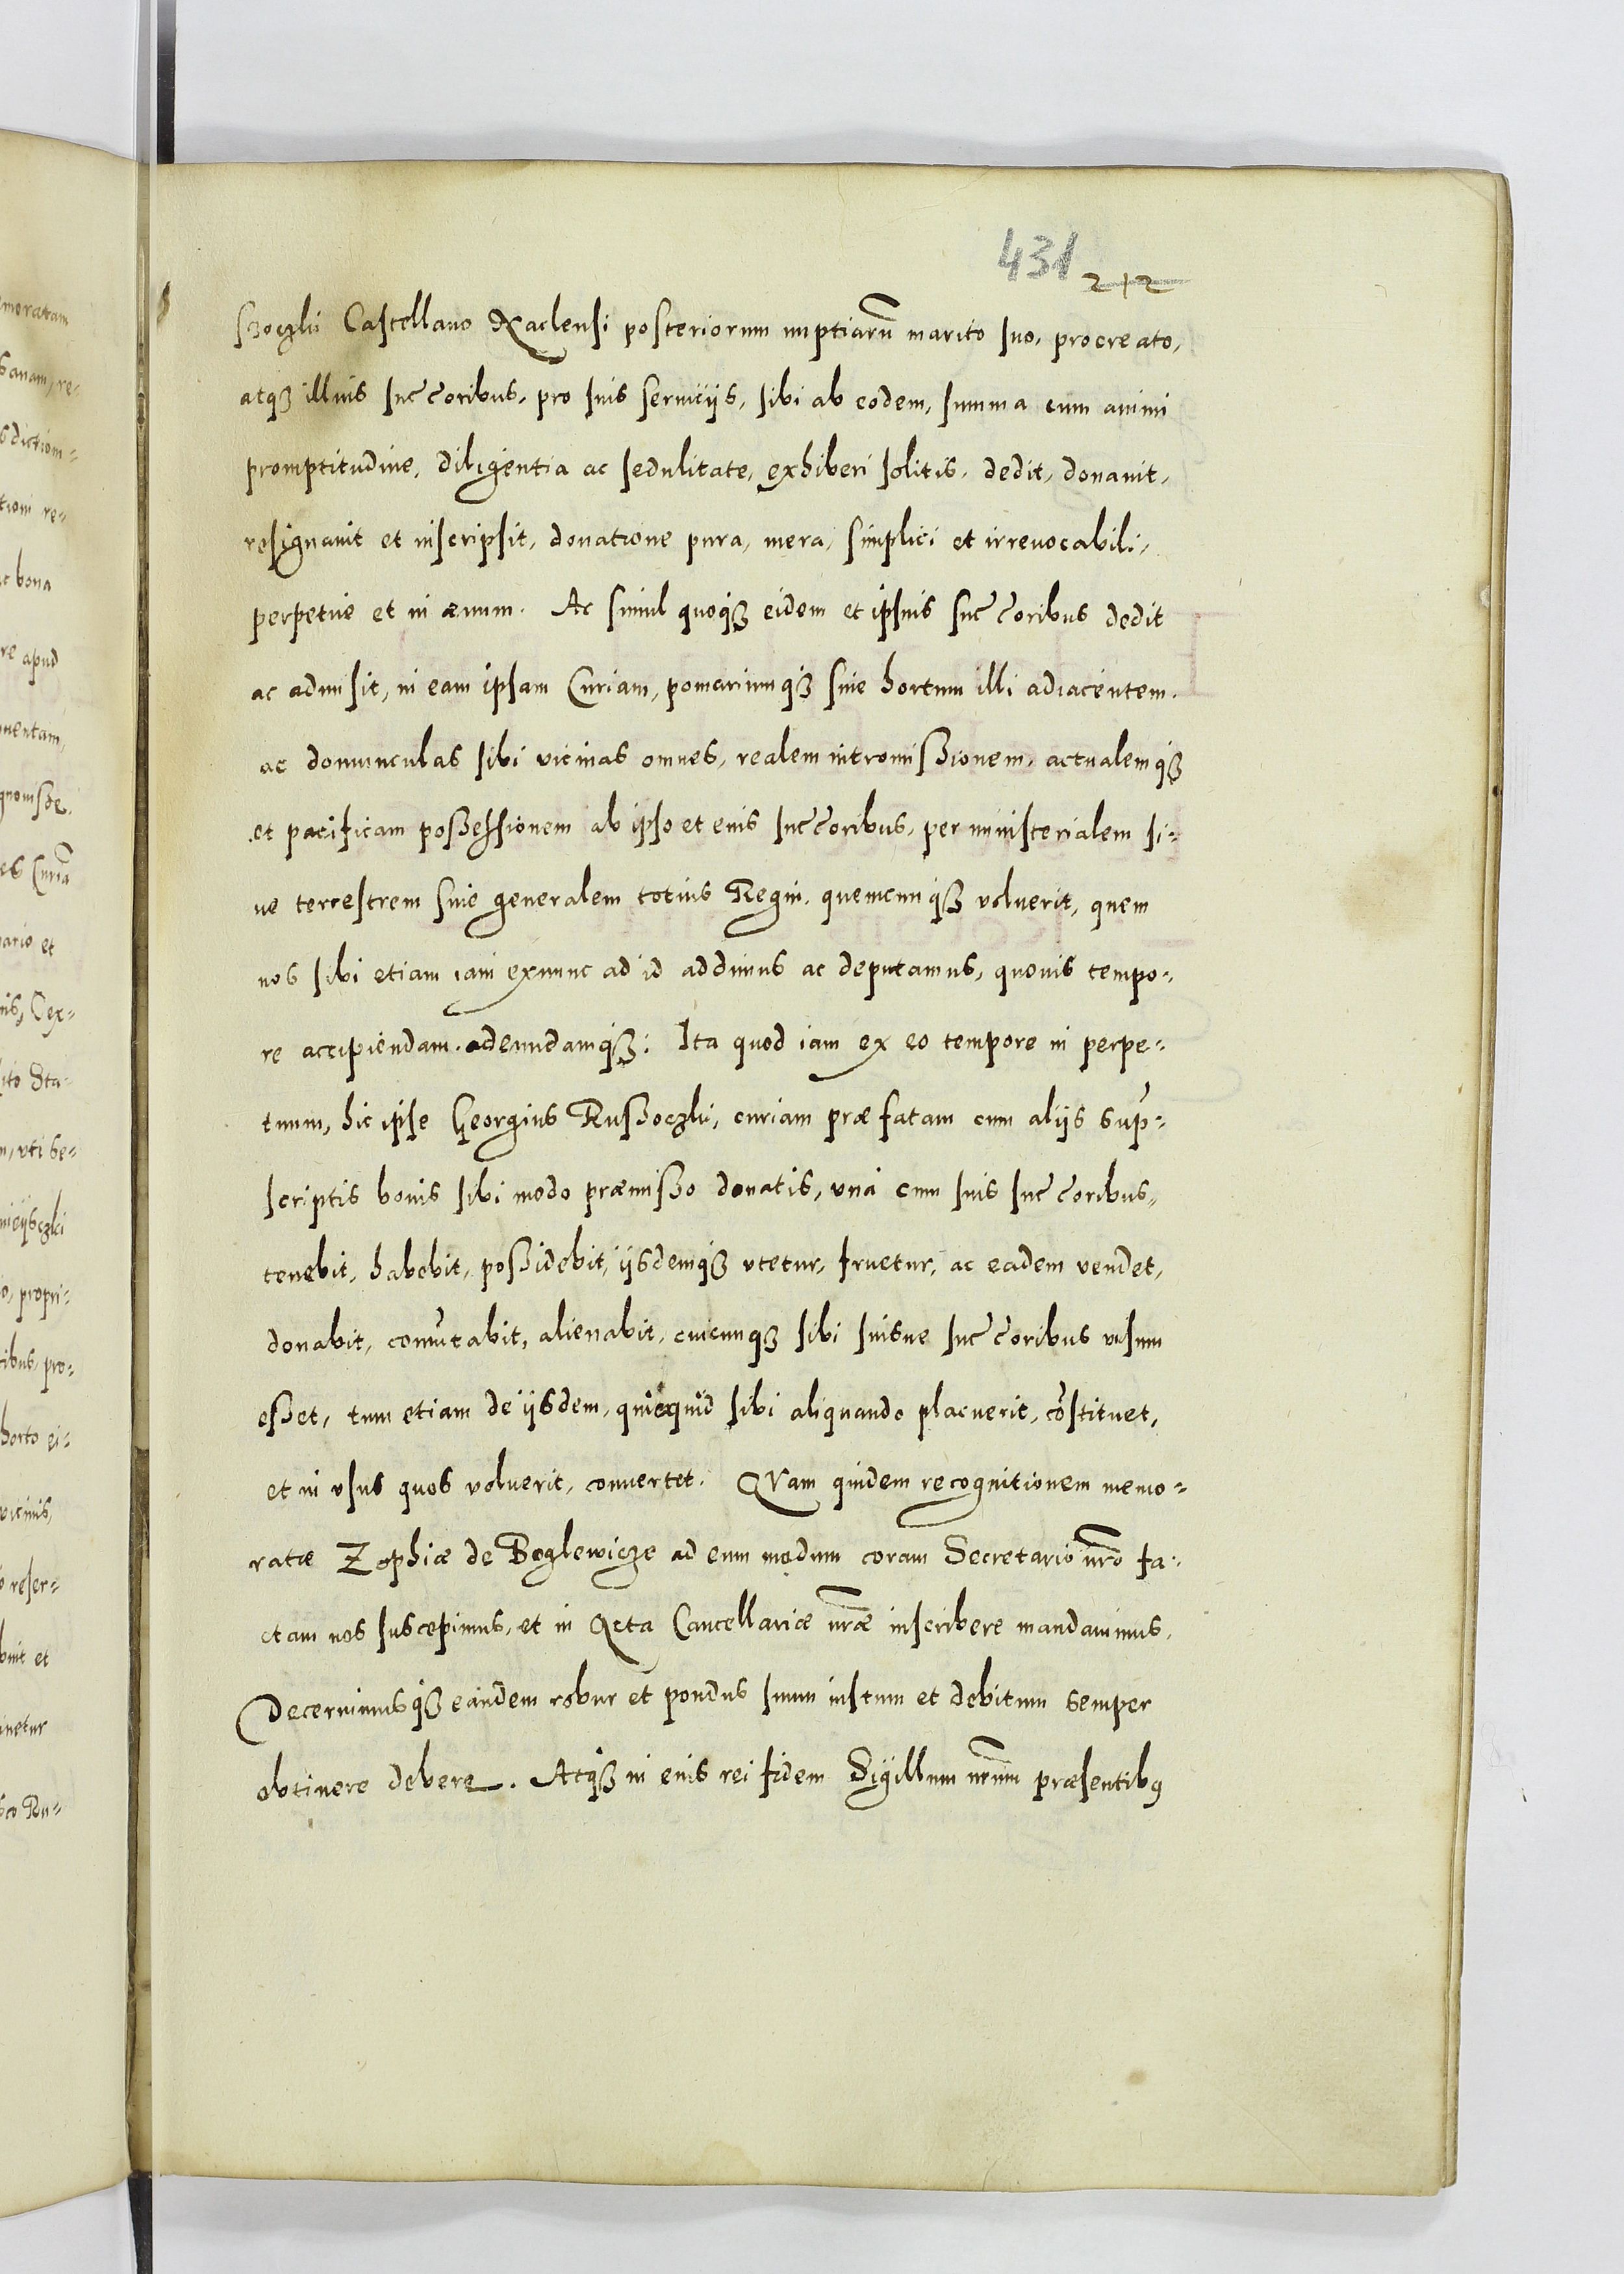 431 212
szoczki Castellano Naclensi posteriorum nuptiarū marito suo, procreato,
atqꝫ illius succ̃oribus, pro suis seruicijs, sibi ab eodem, summa cum animi
promptitudine, diligentia ac sedulitate, exhiberi solitis, dedit, donauit,
resignauit et inscripsit, donatione pura, mera, simplici et irreuocabili,
perpetue et in æuum. Ac simul quoqꝫ eidem et ipsius succ̃oribus dedit
ac admisit, in eam ipsam Curiam, pomariumqꝫ siue hortum illi adiacentem.
ac domunculas sibi vicinas omnes, realem intromißionem, actualemqꝫ
et pacificam poßessionem ab ipso et eius succ̃oribus, per ministerialem si-
ue terrestrem siue generalem totius Regni, quemcunqꝫ voluerit, quem
nos sibi etiam iam exnunc ad id addimus ac deputamus, quouis tempo-
re accipiendam, adeundamqꝫ: Ita quod iam ex eo tempore in perpe-
tuum, hic ipse Georgius Rußoczki, curiam præfatam cum alijs sup̃-
scriptis bonis sibi modo præmißo donatis, vnà cum suis succ̃oribus,
tenebit, habebit, poßidebit, ijsdemqꝫ vtetur, fruetur, ac eadem vendet,
donabit, com̃utabit, alienabit, cuicunqꝫ sibi suisue succ̃oribus visum
eßet, tum etiam de ijsdem, quicquid sibi aliquando placuerit, cõstituet,
et in vsus quos voluerit, conuertet. QVam quidem recognitionem memo-
ratæ Zophiæ de Boglewicze ad eum modum coram Secretario nr̃o fa-
ctam nos suscepimus, et in Acta Cancellariæ nr̃æ inscribere mandauimus,
Decernimusqꝫ eandem robur et pondus suum iustum et debitum semper
obtinere debere. Atqꝫ in eius rei fidem Sigillum nr̃um præsentibꝰ
emoratam
banam, re-
sdiction-
tioni re-
ac bona
re apud
mentam,
es Curiã
ario et
nis, Cex-
ito Sta-
m, vti se-
o, propri-
ribus, pro-
horto ei-
vicinis,
o reser-
buit et
inetur
sco Ru-